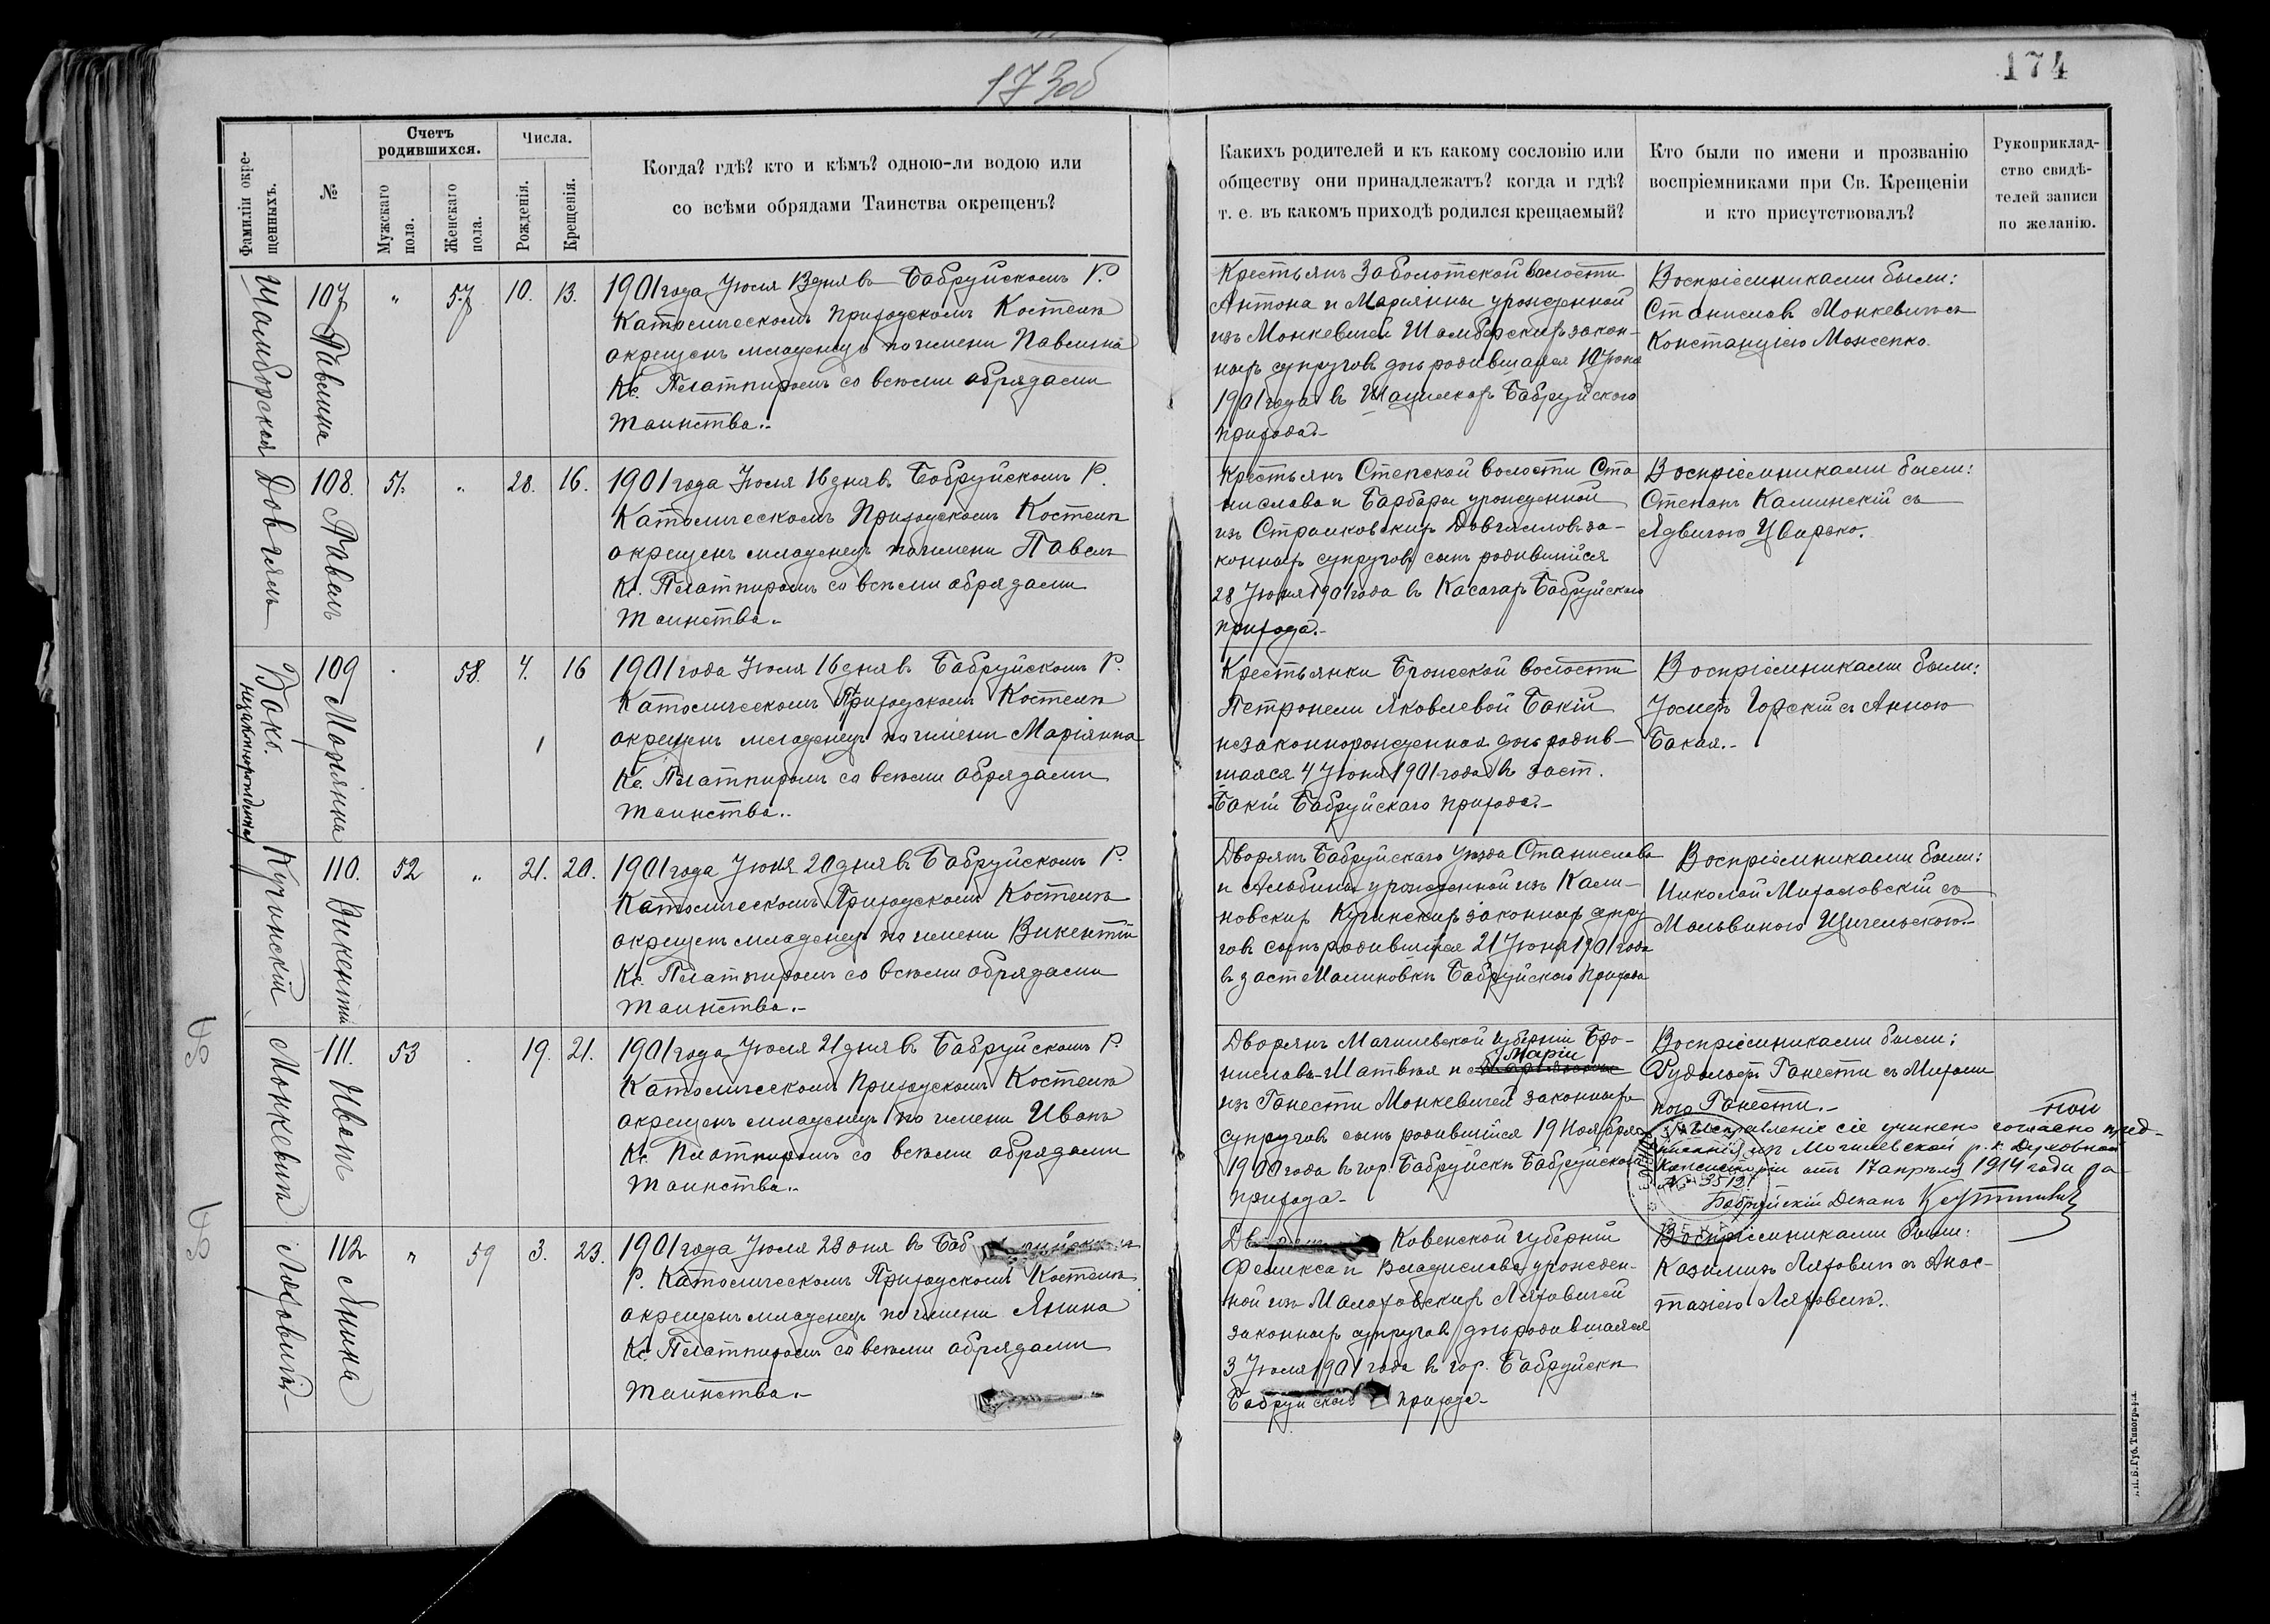 173об
174
Фамиліи окре-
щенныхъ.
№
Счетъ
родившихся.
Мужскаго
пола.
Женскаго
пола.
Числа.
Рожденія.
Крещенія.
Когда? гдѣ? кто и кѣмъ? одною-ли водою или
со всѣми обрядами Таинства окрещенъ?
Какихъ родителей и къ какому сословію или
обществу они принадлежатъ? когда и гдѣ?
т. е. въ какомъ приходѣ родился крещаемый?
Кто были по имени и прозванію
воспріемниками при Св. Крещеніи
и кто присутствовалъ?
Рукоприклад-
ство свидѣ-
телей записи
по желанію.
107 Павлина
" 57 10. 13.
1901 года Іюля 13 дня въ Бабруйскомъ Р.
Католическомъ Приходскомъ Костелѣ
окрещенъ младенецъ по имени Павлина
Кс. Пляткиромъ со всѣми обрядами
таинства.-
Крестьянъ Заболотской волости
Антона и Маріянны урожденной
изъ Монкевичей закон-
ныхъ супруговъ дочь родившаяся 10 Іюня
1901 года въ Бабруйскаго
прихода.-
Воспріемниками были:
Станиславъ Монкевичъ съ
Констанціею
Довгяль
108. Павелъ
51. " 28. 16.
1901 года Іюля 16 дня въ Бобруйскомъ Р.
Католическомъ Приходскомъ Костелѣ
окрещенъ младенецъ по имени Павелъ
Кс. Пляткиромъ со всѣми обрядами
таинства.-
Крестьянъ Степской волости Ста
нислава и Барбары урожденной
изъ за-
конныхъ супруговъ сынъ родившійся
28 Іюня 1901 года въ Касачахъ Бабруйскаго
прихода.-
Воспріемниками были:
Степанъ Калинскій съ
Ядвигою
Бокъ.
незаконнорожденная
109 Маріянна
58. 4. 16
1901 года Іюля 16 дня въ Бабруйскомъ Р.
Католическомъ Приходскомъ Костелѣ
окрещенъ младенецъ по имени Маріянна
Кс. Пляткиромъ со всѣми обрядами
таинства..
Крестьянки волости
Петронели Яковлевой Бакій
незаконнорожденная дочь родив-
шаяся 4 Іюня 1901 года въ заст.
Бакій Бабруйскаго прихода.-
Воспріемниками были:
Іосифъ Горскій съ Анною
Бакая.-
Кучинскій
110. Викентій
52 " 21. 20.
1901 года Іюля 20 дня въ Бабруйскомъ Р.
Католическомъ Приходскомъ Костелѣ
окрещенъ младенецъ по имени Викентій
Кс. Пляткиромъ со всѣми обрядами
таинства.-
Дворянъ Бабруйскаго уѣзда Станислава
и Альбины урожденной изъ Кали-
новскихъ Кучинскихъ законныхъ супру
говъ сынъ родившійся 21 Іюня 1901 года
въ заст Малиновкѣ Бабруйскаго прихода
Воспріемниками были:
Николай съ
Мальвиною
Монкевичъ
111. Иванъ
53 . 19. 21.
1901 года Іюля 21 дня въ Бабруйскомъ Р.
Католическомъ Приходскомъ Костелѣ
окрещенъ младенецъ по имени Иванъ
Кс. Пляткиромъ со всѣми обрядами
таинства.-
Дворянъ Могилевской губерніи Бро-
нислава-Матвѣя и Маріи
изъ Ганести Монкевичей законныхъ
супруговъ сынъ родившійся 19 Ноября
1900 года въ гор. Бабруйскѣ Бабруйскаго
прихода-
Воспріемниками были:
Рудольфъ Ганести съ
Ганести.-
исправленіе сіе учинено согласно пред-
писанія изъ Могилевской р. к. Духовной
Консисторіи отъ 17 апрѣля 1914 года за
№ 3512
Бабруйскій Деканъ
Ляховичъ
112 Янина
" 59 3. 23.
1901 года Іюля 23 дня въ Баб
Р. Католическомъ Приходскомъ Костелѣ
окрещенъ младенецъ по имени Янина
Кс. Пляткиромъ со всѣми обрядами
таинства.-
Ковенской губерніи
Феликса и Владиславы урожден-
ной изъ Ляховичей
законныхъ супруговъ дочь родившаяся
3 Іюля 1901 года въ гор. Бабруйскѣ
Бабруйскаго прихода-
Воспріемниками были:
Казимиръ Ляховичъ съ Анас-
тазіею Ляховичъ.